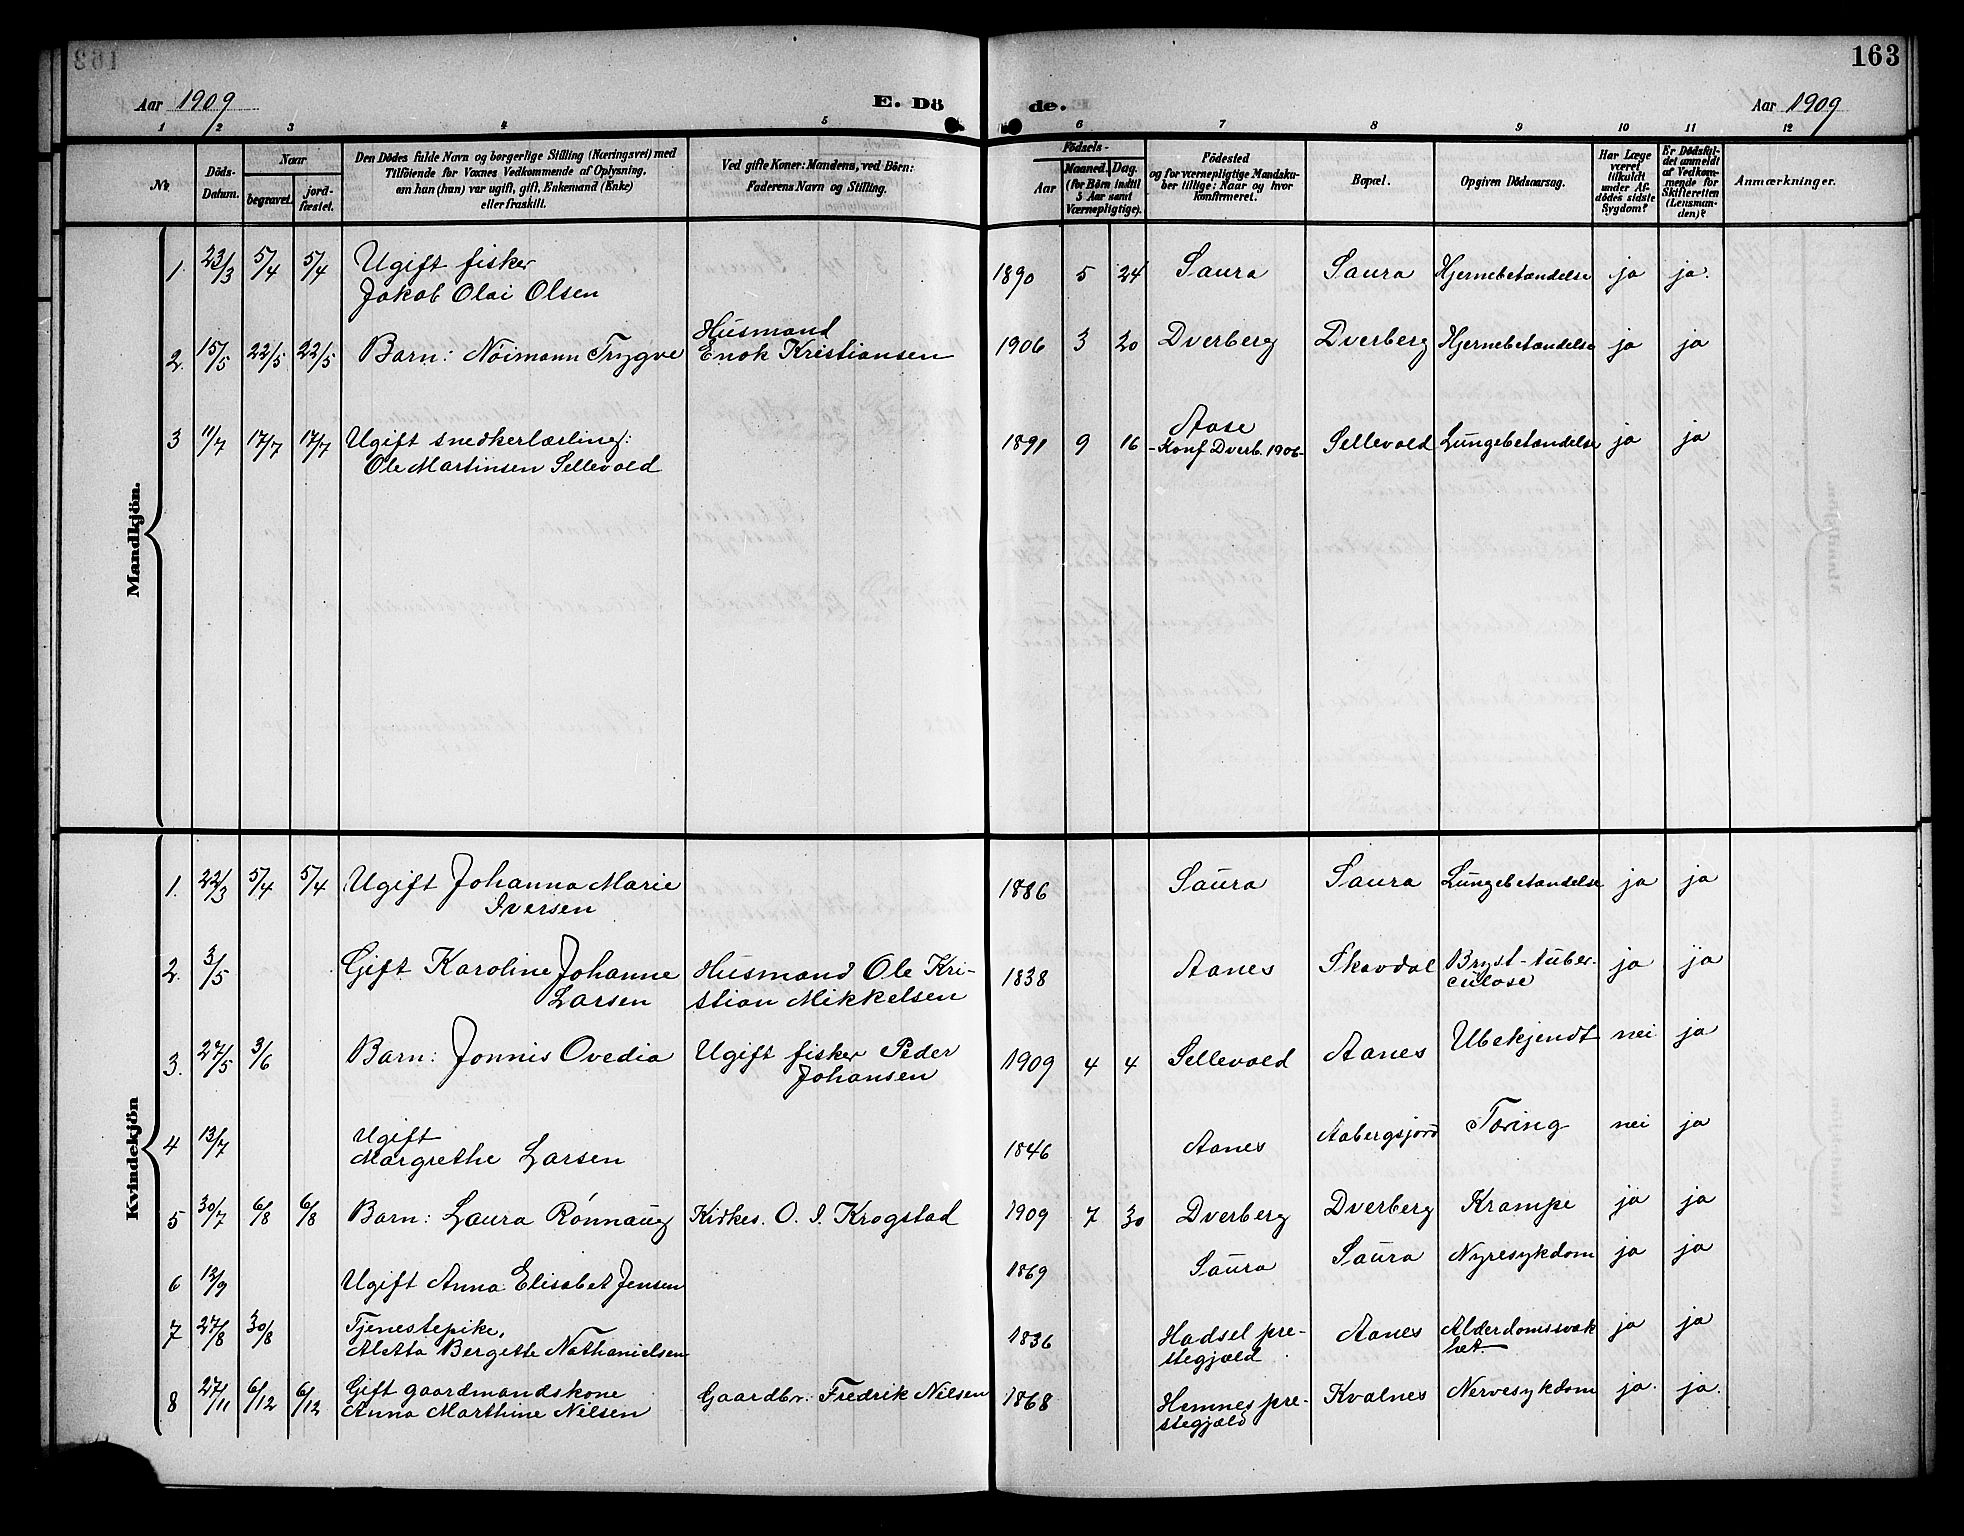 163
Aar 1909
E. Dö
de.
Aar 1909
1 2 3 4 5 6 7 8 9 10 11 12
No.
Döds-Datum.
Naar
begravet.
jord-fæstet.
Den Dödes fulde Navn og borgerlige Stilling (Næringsvei) med
Tilföiende for Voxnes Vedkommende af Oplysning,
om han (hun) var ugift, gift, Enkemand (Enke)
eller fraskilt.
Ved gifte Koner: Mandens, ved Börn:
Faderens Navn og Stilling.
Födsels-
Aar
Maaned. Dag.
(for Börn indtil
5 Aar samt
Værnepligtige).
Födested
og for værnepligtige Mandska-
ber tillige: Naar og hvor
konfirmeret.
Bopæl.
Opgiven Dödsaarsag.
Har Læge
været
tilkaldt
under Af-
dödes sidste
Sygdom?
Er Dödsfal-
det anmeldt
af Vedkom-
mende for
Skifteretten
(Lensman-
den)?
Anmærkninger.
Mandkjön.
1. 23/3 5/4 5/4 Ugift fisker
Jakob Olai Olsen
1890 5 24 Saura Saura Hjernebetændelse ja ja.
2. 15/5 22/5 22/5 Barn: Nöimann Trygve
Husmand
Enok Kristiansen
1906 3 20 Dverberg Dverberg Hjernebetændelse ja ja
3 11/7 17/7 17/7 Ugift snedkerlærling:
Ole Martinsen Sellevold
1891 9 16 Aase
-Konf Dverb. 1906-
Sellevold Lungebetændelse ja ja
Kvindekjön
1. 22/3 5/4 5/4 Ugift Johanna Marie
Iversen
1886 Saura Saura Lungebetændelse ja ja
2. 3/5 Gift Karoline Johanne
Larsen
Husmand Ole Kri-
stian Mikkelsen
1838 Aanes Skavdal Bryst-tuber-
culose
ja ja
3. 27/5 3/6 Barn: Jonnis Ovedia
Ugift fisker Peder
Johansen
1909 4 4 Sellevold Aanes Ubekjendt nei ja
4 13/7 Ugift
Margrethe Larsen
1846 Aanes Aabergsjord Tæring nei ja
5 30/7 6/8 6/8 Barn: Laura Rønnaug Kirkes. O. I. Krogstad
1909 7 30 Dverberg Dverberg Krampe ja ja
6 12/9 Ugift Anna Elisabet Jensen
1869 Saura Saura Nyresykdom ja ja
7 27/8 30/8 Tjenestepike,
Aletta Bergette Nathanielsen
1836 Hadsel pre-
stegjæld
Aanes Alderdomssvak
het.
ja ja
8 27/11 6/12 6/12 Gift gaardmandskone
Anna Marthine Nilsen
Gaardbr. Fredrik Nilsen
1868 Hemnes pre-
stegjæld
Kvalnes Nervesykdom ja. ja.